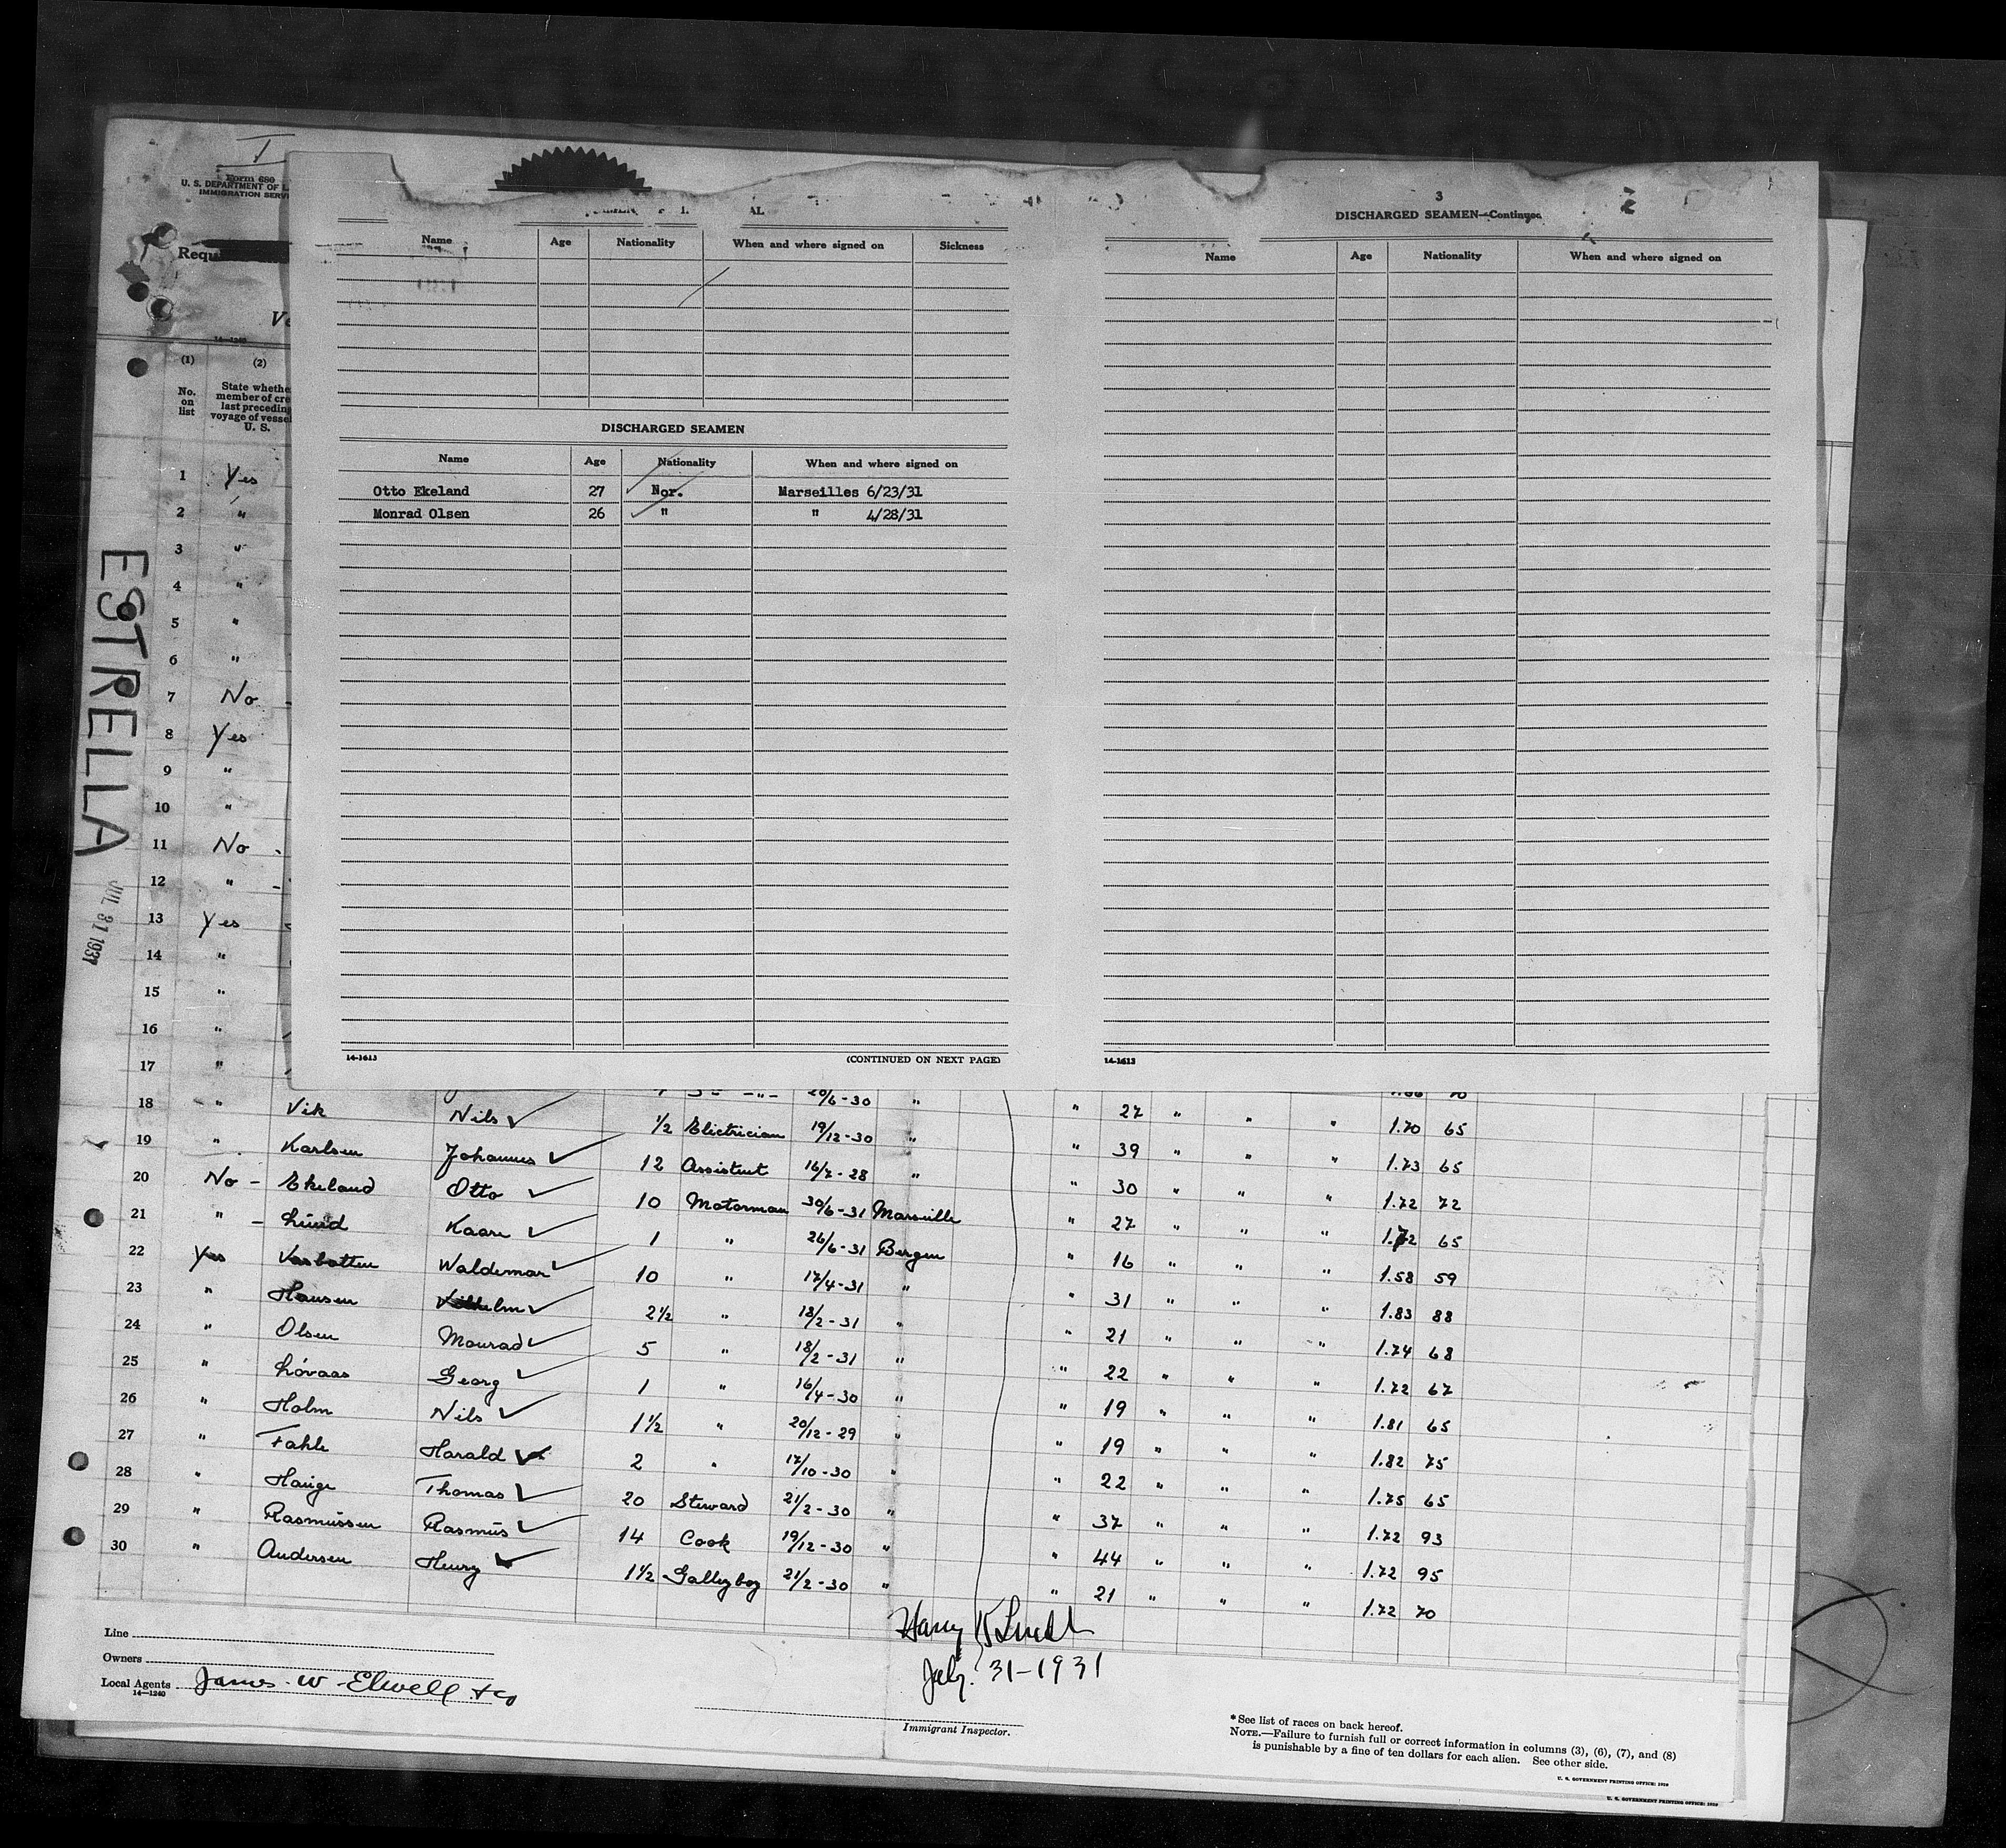 Form 680
U. S. DEPARTMENT OF L
IMMIGRATION SERV
Requ
14—1240
(1) (2)
No. on list
State whethe
member of cre
last precedin
voyage of vesse
U. S.
ESTRELLA
JUL 31 1931
Name Age Nationality When and where signed on Sickness
DISCHARGED SEAMEN
Name Age Nationality When and where signed on
Otto Ekeland 27 Nor. Marseilles 6/23/31
Monrad Olsen 26 " " 4/28/31
14-1613 (CONTINUED ON NEXT PAGE)
3
DISCHARGED SEAMEN—Continued
Name Age Nationality When and where signed on
14-1613
1 Yes
2 "
3 "
4 "
5 "
6 "
7 No -
8 Yes
9 "
10 "
11 No -
12 " -
13 Yes
14 "
15 "
16 "
17 " 20/6-30 "
18 " Vik Nils 1/2 Elictrician 19/12-30 " " 27 " " " 1.70 65
19 " Karlsen Johannes 12 Assistent 16/7-28 " " 39 " " " 1.73 65
20 No - Ekeland Otto 10 Motorman 30/6-31 Marseille " 30 " " " 1.72 72
21 " - Lund Kaare 1 " 26/6-31 Bergen " 27 " " " 1.72 65
22 Yes Vasbotten Waldemar 10 " 17/4-31 " " 16 " " " 1.58 59
23 " Hansen Vilhelm 2 1/2 " 18/2-31 " " 31 " " " 1.83 88
24 " Olsen Monrad 5 " 18/2-31 " " 21 " " " 1.74 68
25 " Lövaas Georg 1 " 16/4-30 " " 22 " " " 1.72 67
26 " Holm Nils 1 1/2 " 20/12-29 " " 19 " " " 1.81 65
27 " Fahle Harald 2 " 17/10-30 " " 19 " " " 1.82 75
28 " Hauge Thomas 20 Steward 21/2-30 " " 22 " " " 1.75 65
29 " Rasmussen Rasmus 14 Cook 19/12-30 " " 37 " " " 1.72 93
30 " Andersen Henry 1 1/2 Galleyboy 21/2-30 " " 44 " " " 1.72 95
" 21 " " " 1.72 70
Line
Owners
Local Agents James W Elwell & Co
14—1240
Harry
July 31-1931
Immigrant Inspector.
*See list of races on back hereof.
NOTE.—Failure to furnish full or correct information in columns (3), (6), (7), and (8)
is punishable by a fine of ten dollars for each alien. See other side.
U. S. GOVERNMENT PRINTING OFFICE: 1929
U. S. GOVERNMENT PRINTING OFFICE: 1929